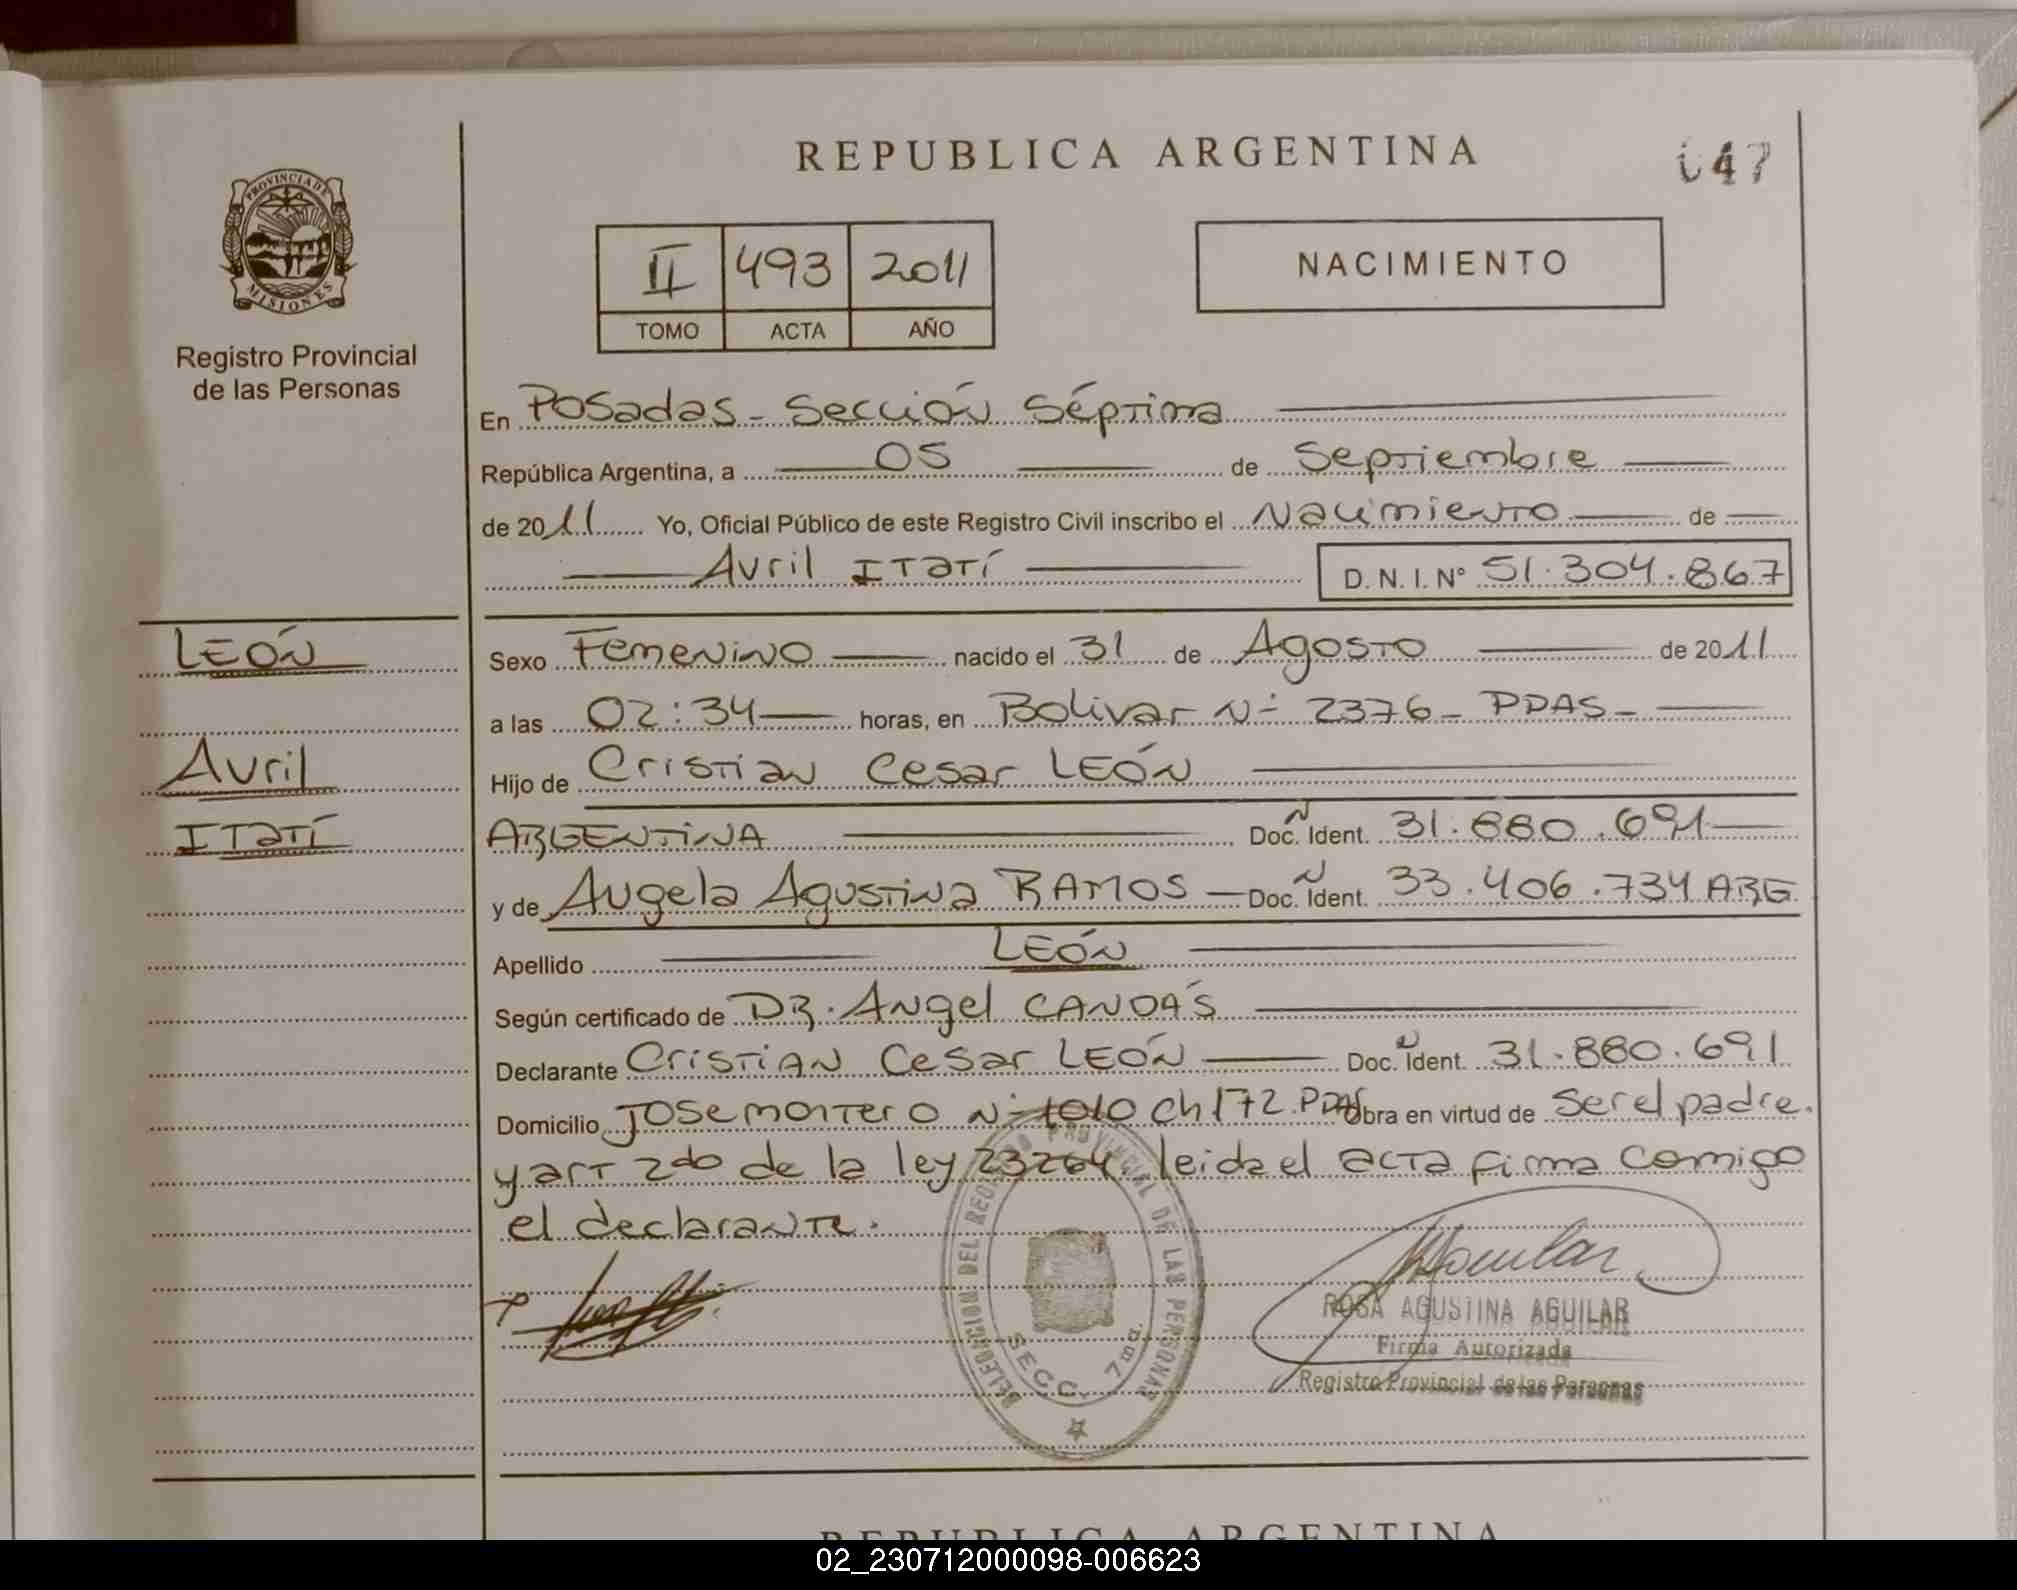 REPUBLICA ARGENTINA
047
PROVINCIA DE
MISIONES
Registro Provincial
de las Personas
II 493 2011
TOMO ACTA AÑO
NACIMIENTO
En Posadas - Sección Séptima
República Argentina, a 05 de Septiembre
de 2011 Yo, Oficial Público de este Registro Civil inscribo el Nacimiento de
Avril Itatí D. N. I. N° 51.304.867
LEÓN
Avril
Itatí
Sexo Femenino nacido el 31 de Agosto de 2011
a las 02:34 horas, en Bolivar N° 2376 - PDAS -
Hijo de Cristian Cesar LEÓN
ARGENTINA Doc. Ident. 31.880.691
y de Angela Agustina RAMOS Doc. Ident. 33.406.734 ARG
Apellido LEÓN
Según certificado de DR. Angel CANDÁS
Declarante Cristian Cesar LEÓN Doc. Ident. 31.880.691
Domicilio Jose montero N° 1010 ch 172. PDAS Obra en virtud de Ser el padre.
y art 2do de la ley 23264. leida el acta firma comigo
el declarante.
DELEGACION DEL REGISTRO PROVINCIAL DE LAS PERSONAS
SECC. 7ma.
ROSA AGUSTINA AGUILAR
Firma Autorizada
Registro Provincial de las Personas
REPUBLICA ARGENTINA
02_230712000098-006623